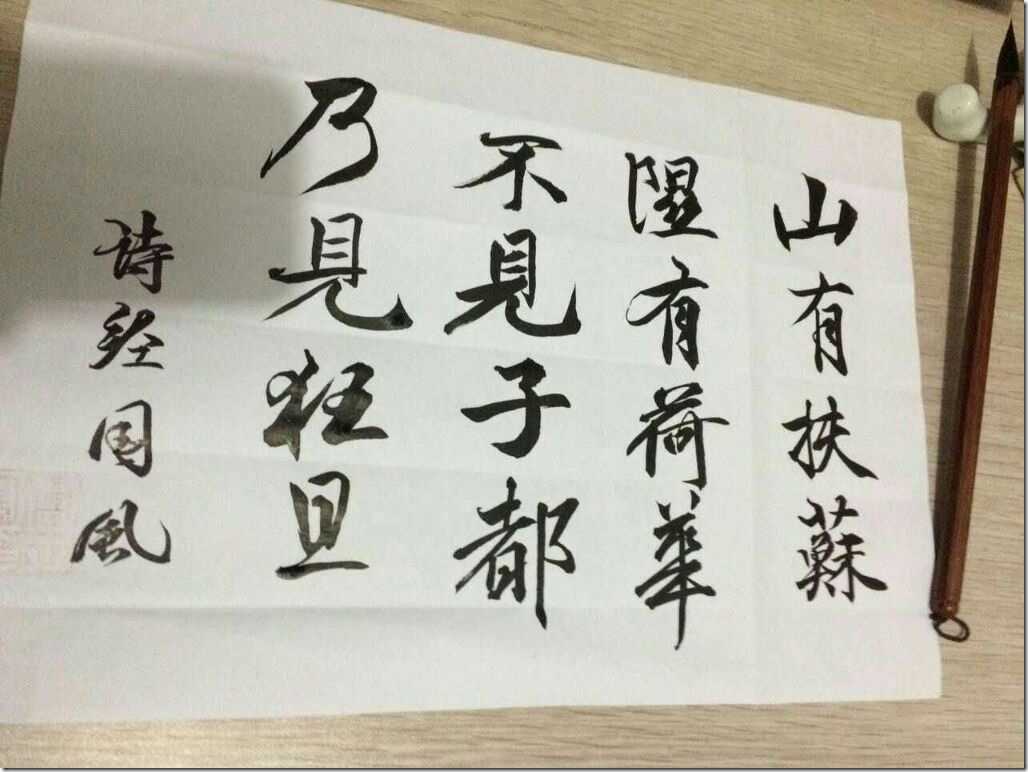 山有扶蘇
隰有荷華
不見子都
乃見狂且
詩經国風